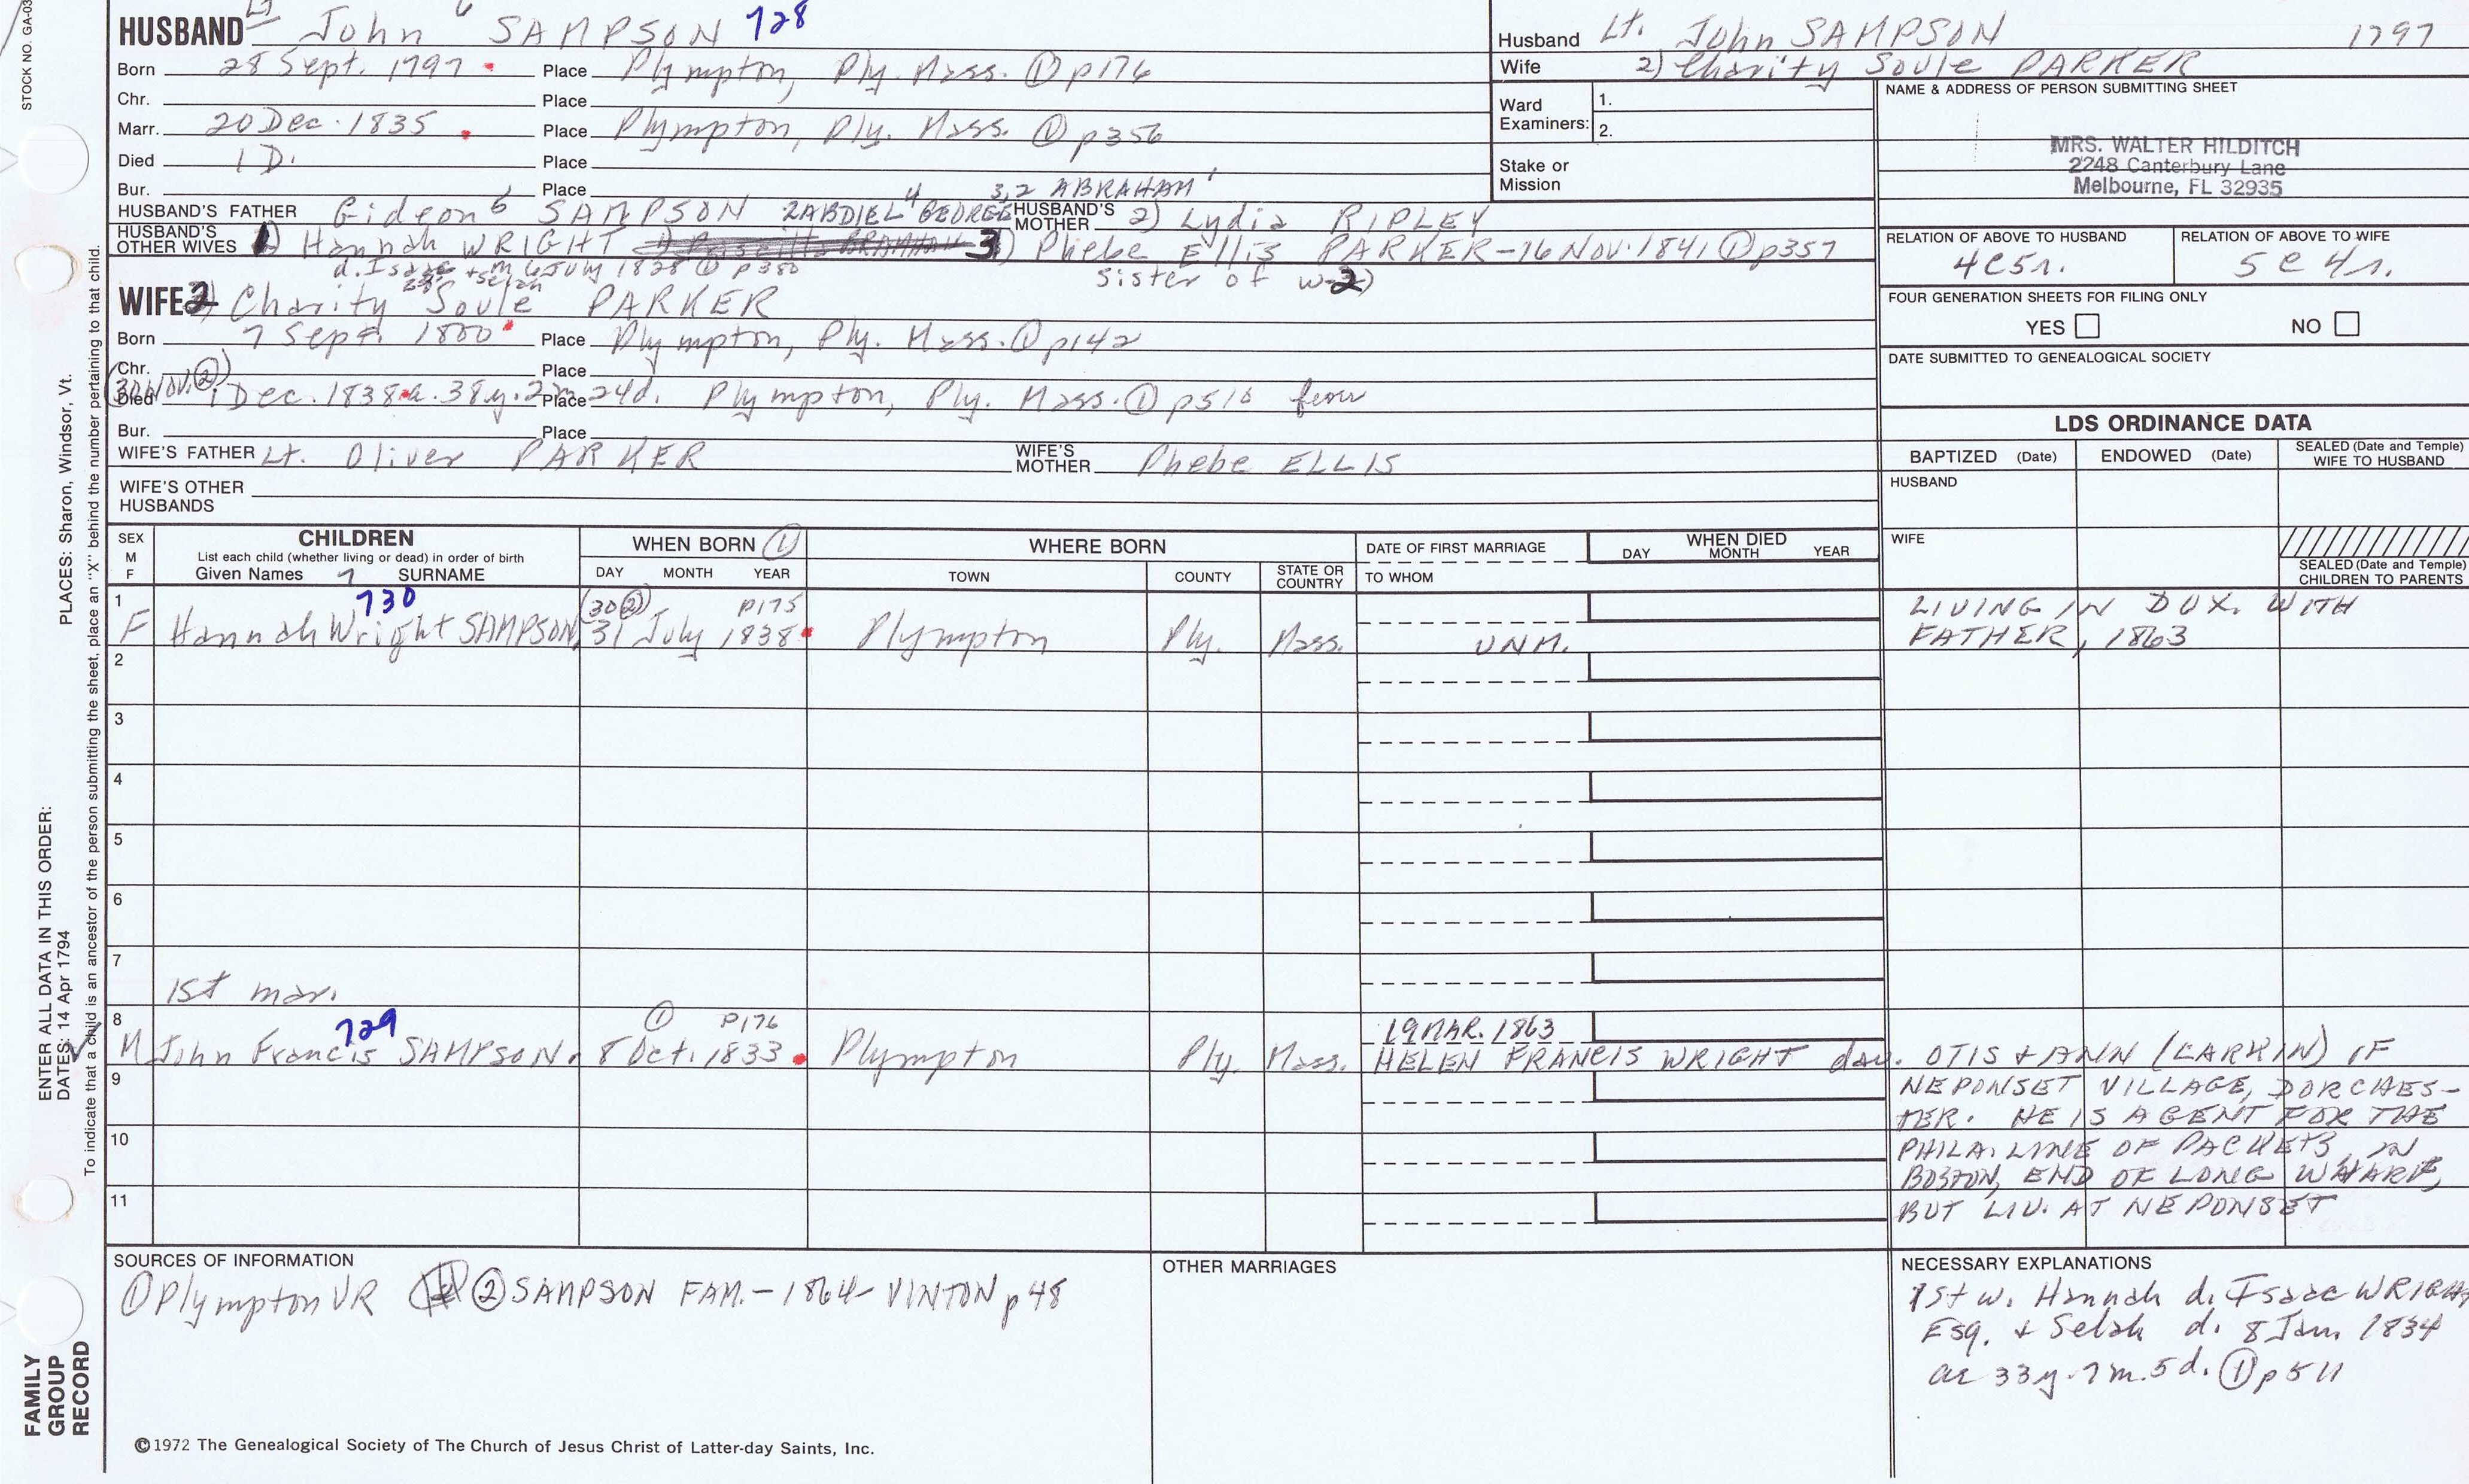 STOCK NO. GA-03
HUSBAND Lt John 6 SAMPSON 728
Born 28 Sept. 1797 Place Plympton, Ply. Mass. ① p176
Chr. Place
Marr. 20 Dec. 1835 Place Plympton, Ply. Mass. ① p356
Died 1 D. Place
Bur. Place
4 3,2 ABRAHAM 1
HUSBAND'S FATHER Gideon 5 SAMPSON ZABDIEL 4 GEORGE HUSBAND'S MOTHER 2) Lydia RIPLEY
HUSBAND'S OTHER WIVES 1) Hannah WRIGHT 3) Phebe Ellis PARKER-16 Nov. 1841 ① p357
d. Isaac + Selah m 6 July 1828 ① p380
sister of w-2)
WIFE 2) Charity Soule PARKER
Born 7 Sept. 1800 Place Plympton, Ply. Mass. ① p142
Chr. Place
(30 Nov. ②)
Died 1 Dec. 1838 a. 38y. 2m 24d. Place Plympton, Ply. Mass. ① p510 fever
Bur. Place
WIFE'S FATHER Lt. Oliver PARKER WIFE'S MOTHER Phebe ELLIS
WIFE'S OTHER HUSBANDS
Husband Lt. John SAMPSON 1797
Wife 2) Charity Soule PARKER
Ward Examiners: 1.
2.
Stake or Mission
NAME & ADDRESS OF PERSON SUBMITTING SHEET
MRS. WALTER HILDITCH
2248 Canterbury Lane
Melbourne, FL 32935
RELATION OF ABOVE TO HUSBAND RELATION OF ABOVE TO WIFE
4c5r. 5c4r.
FOUR GENERATION SHEETS FOR FILING ONLY
YES NO
DATE SUBMITTED TO GENEALOGICAL SOCIETY
LDS ORDINANCE DATA
BAPTIZED (Date) ENDOWED (Date) SEALED (Date and Temple) WIFE TO HUSBAND
HUSBAND
WIFE
SEALED (Date and Temple) CHILDREN TO PARENTS
SEX M F
CHILDREN
List each child (whether living or dead) in order of birth
Given Names 7 SURNAME
WHEN BORN ①
DAY MONTH YEAR
WHERE BORN
TOWN COUNTY STATE OR COUNTRY
DATE OF FIRST MARRIAGE
TO WHOM
WHEN DIED
DAY MONTH YEAR
1 730 (30 ②) p175 LIVING IN DUX. WITH
F Hannah Wright SAMPSON 31 July 1838 Plympton Ply. Mass. UNM. FATHER, 1863
2
3
4
5
6
7
1st mar.
8 729 ① p176 19 MAR. 1863
M John Francis SAMPSON 8 Oct. 1833 Plympton Ply. Mass. HELEN FRANCIS WRIGHT dau. OTIS + ANN (LARKIN) OF
9 NEPONSET VILLAGE, DORCHES-
TER. HE IS AGENT FOR THE
10 PHILA. LINE OF PACKETS, IN
BOSTON, END OF LONG WHARF,
11 BUT LIV. AT NEPONSET
SOURCES OF INFORMATION
① Plympton VR ② SAMPSON FAM.-1864-VINTON p48
OTHER MARRIAGES
NECESSARY EXPLANATIONS
1st w. Hannah d. Isaac WRIGHT
Esq. + Selah d. 8 Jan. 1834
ae 33y. 7m. 5d. ① p511
PLACES: Sharon, Windsor, Vt.
ENTER ALL DATA IN THIS ORDER:
DATES: 14 Apr 1794
To indicate that a child is an ancestor of the person submitting the sheet, place an "X" behind the number pertaining to that child.
FAMILY GROUP RECORD
©1972 The Genealogical Society of The Church of Jesus Christ of Latter-day Saints, Inc.